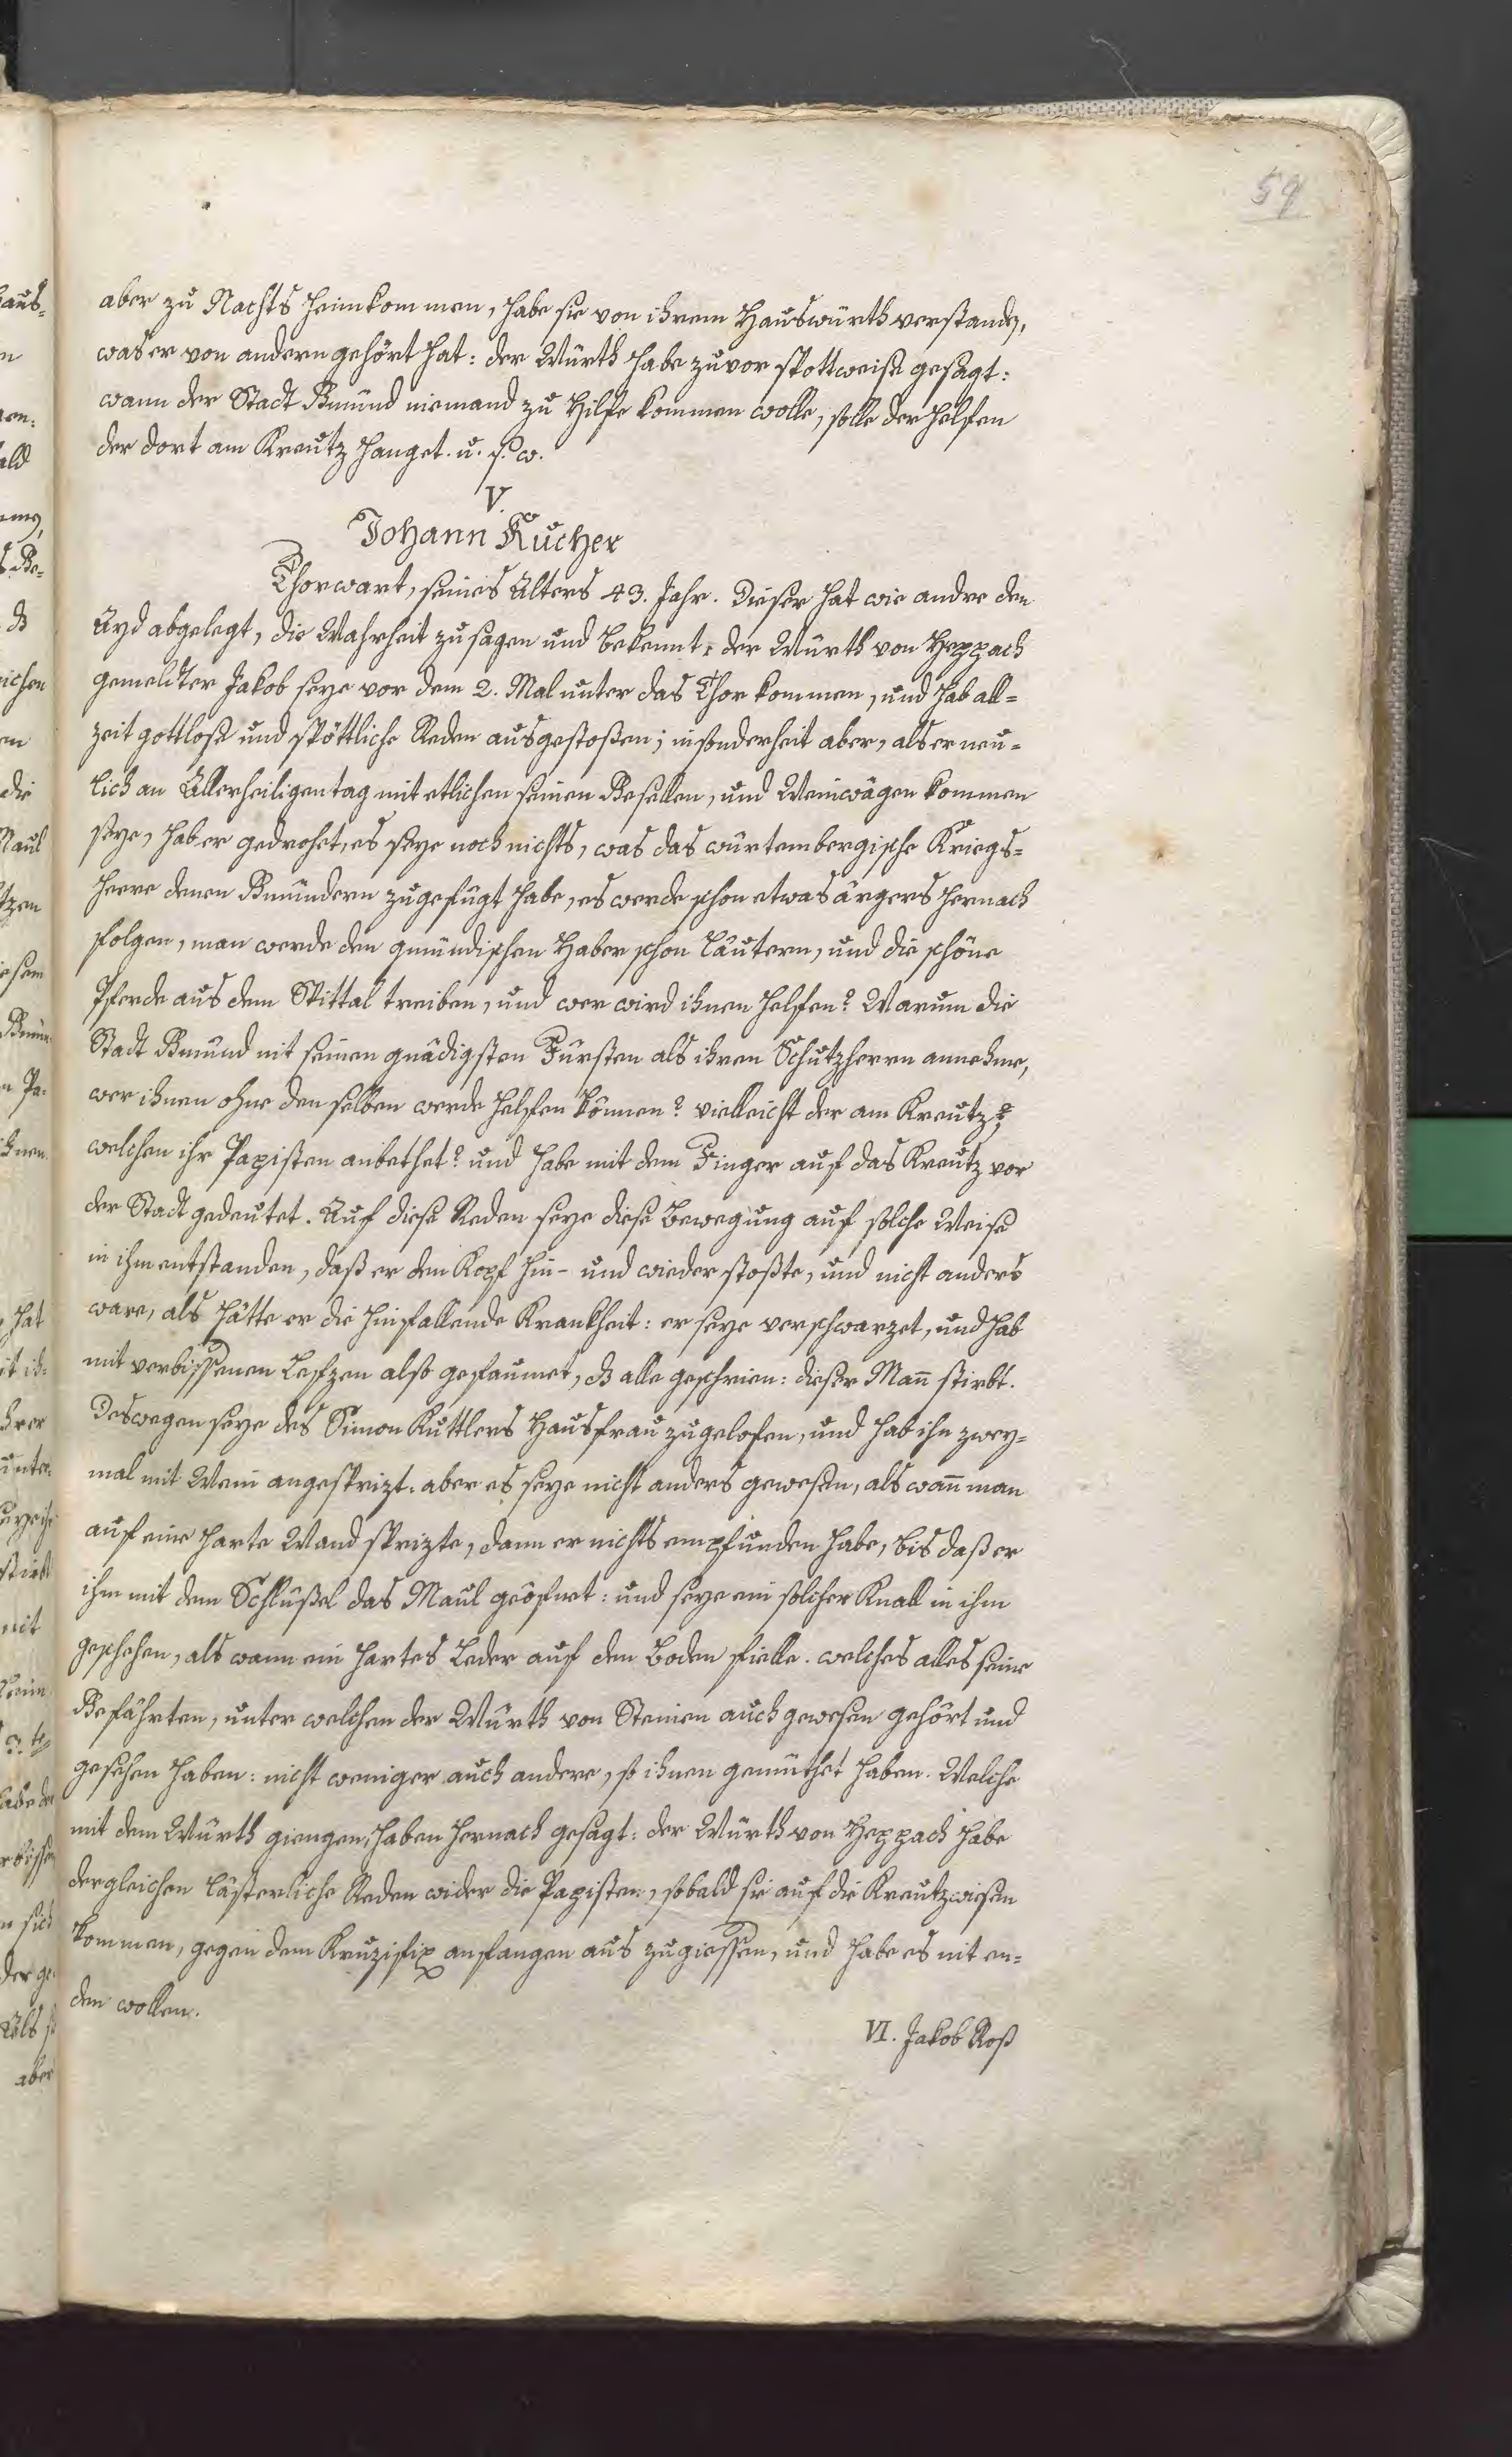 59
aber zu Nachts heimkommen, habe sie von ihrem Hauswürth verstanden,
was er von andern gehört hat: der Würth habe zuvor spottweise gesagt:
wann der Stadt Gmünd niemand zu Hilfe kommen wolle, solle der helfen
der dort am Kreutz hanget. u. s. w.
V.
Johann Kucher
Thorwart, seines Alters 43. Jahr. Dieser hat wie andre den
Ayd abgelegt, die Wahrheit zu sagen und bekennt: der Würth von Heppach
gemeldter Jakob seye vor dem 2. Mal unter das Thor kommen, und hab all=
zeit gottlose und spöttliche Reden ausgestoßen; insonderheit aber, als er neu=
lich an Allerheiligentag mit etlichen seinen Gesellen, und Weinwägen kommen
seye, hab er gedrohet, es seye noch nichts, was das würtembergische Kriegs=
heere denen Gmündern zugefügt habe, es werde schon etwas ärgers hernach
folgen, man werde den gmündischen Haber schon läutern, und die schöne
Pferde aus dem Spittal treiben, und wer wird ihnen helfen? Warum die
Stadt Gmünd nit seinen gnädigsten Fürsten als ihren Schutzherrn annehme,
wer ihnen ohne denselben werde helfen können? vielleicht der am Kreutz?
welchen ihr Papisten anbethet? und habe mit dem Finger auf das Kreutz vor
der Stadt gedeutet. Auf diese Reden seye diese Bewegung auf solche Weise
in ihm entstanden, daß er den Kopf hin- und wieder stoßte, und nicht anders
ware, als hätte er die hinfallende Krankheit: er seye verschwarzet, und hab
mit verbissenen Lefzen also gefaumet, dß alle geschrien: dieser Mañ stirbt.
Deswegen seye des Simon Kuttlers Hausfrau zugelofen, und hab ihn zwey=
mal mit Wein angesprizt: aber es seye nicht anders gewesen, als wañ man
auf eine harte Wand sprizte, dann er nichts empfunden habe, bis daß er
ihm mit dem Schlüßel das Maul geöfnet: und seye ein solcher Knall in ihm
geschehen, als wann ein hartes Leder auf den Boden fielle. welches alles seine
Gefährten, unter welchen der Würth von Steinen auch gewesen gehört und
gesehen haben: nicht weniger auch andere, so ihnen gemüthet haben. Welche
mit dem Würth giengen, haben hernach gesagt: der Würth von Heppach habe
dergleichen lästerliche Reden wider die Papisten, sobald sie auf die Kreutzwiesen
kommen, gegen dem Kruzifix anfangen aus zugiessen, und habe es nit en=
den wollen.
VI. Jakob Roß